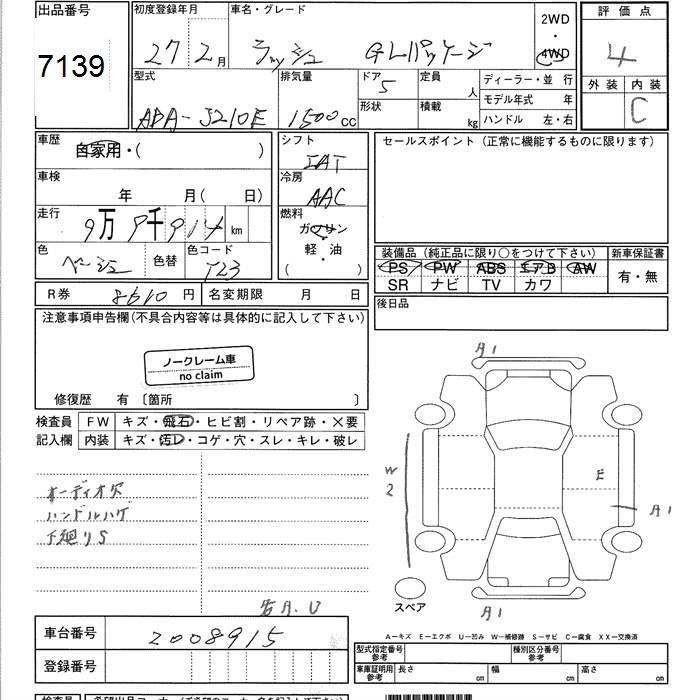 出品番号
7139
初度登録年月
27 2月
車名・グレード
ラッシュ GLパッケージ
2WD
・
4WD
評価点
4
外装 内装
C
型式
ABA-J210E
排気量
1500cc
ドア 5
形状
定員 人
積載 kg
ディーラー・並行
モデル年式 年
ハンドル 左・右
車歴
自家用・( )
車検
年 月( 日)
走行
9万9千914km
色
ベージュ
色替
色コード
T23
シフト
IAT
冷房
AAC
燃料
ガソリン
軽・油
( ・ )
セールスポイント(正常に機能するものに限ります)
装備品(純正品に限り○をつけて下さい)
PS PW ABS エアB AW
SR ナビ TV カワ
新車保証書
有・無
後日品
R券 8610円
名変期限 月 日
注意事項申告欄(不具合内容等は具体的に記入して下さい)
ノークレーム車
no claim
修復歴 有〔箇所 〕
検査員
記入欄
FW キズ・飛石・ヒビ割・リペア跡・×要
内装 キズ・汚レ・コゲ・穴・スレ・キレ・破レ
オーディオ欠
ハンドルハゲ
下廻りS
各A.U
A1
W2
E
A1
A1
スペア
A—キズ E—エクボ U—凹み W—補修跡 S—サビ C—腐食 XX—交換済
車台番号
2008915
登録番号
型式指定番号
参考
種別区分番号
参考
車庫証明用
参考
長さ cm
幅 cm
高さ cm